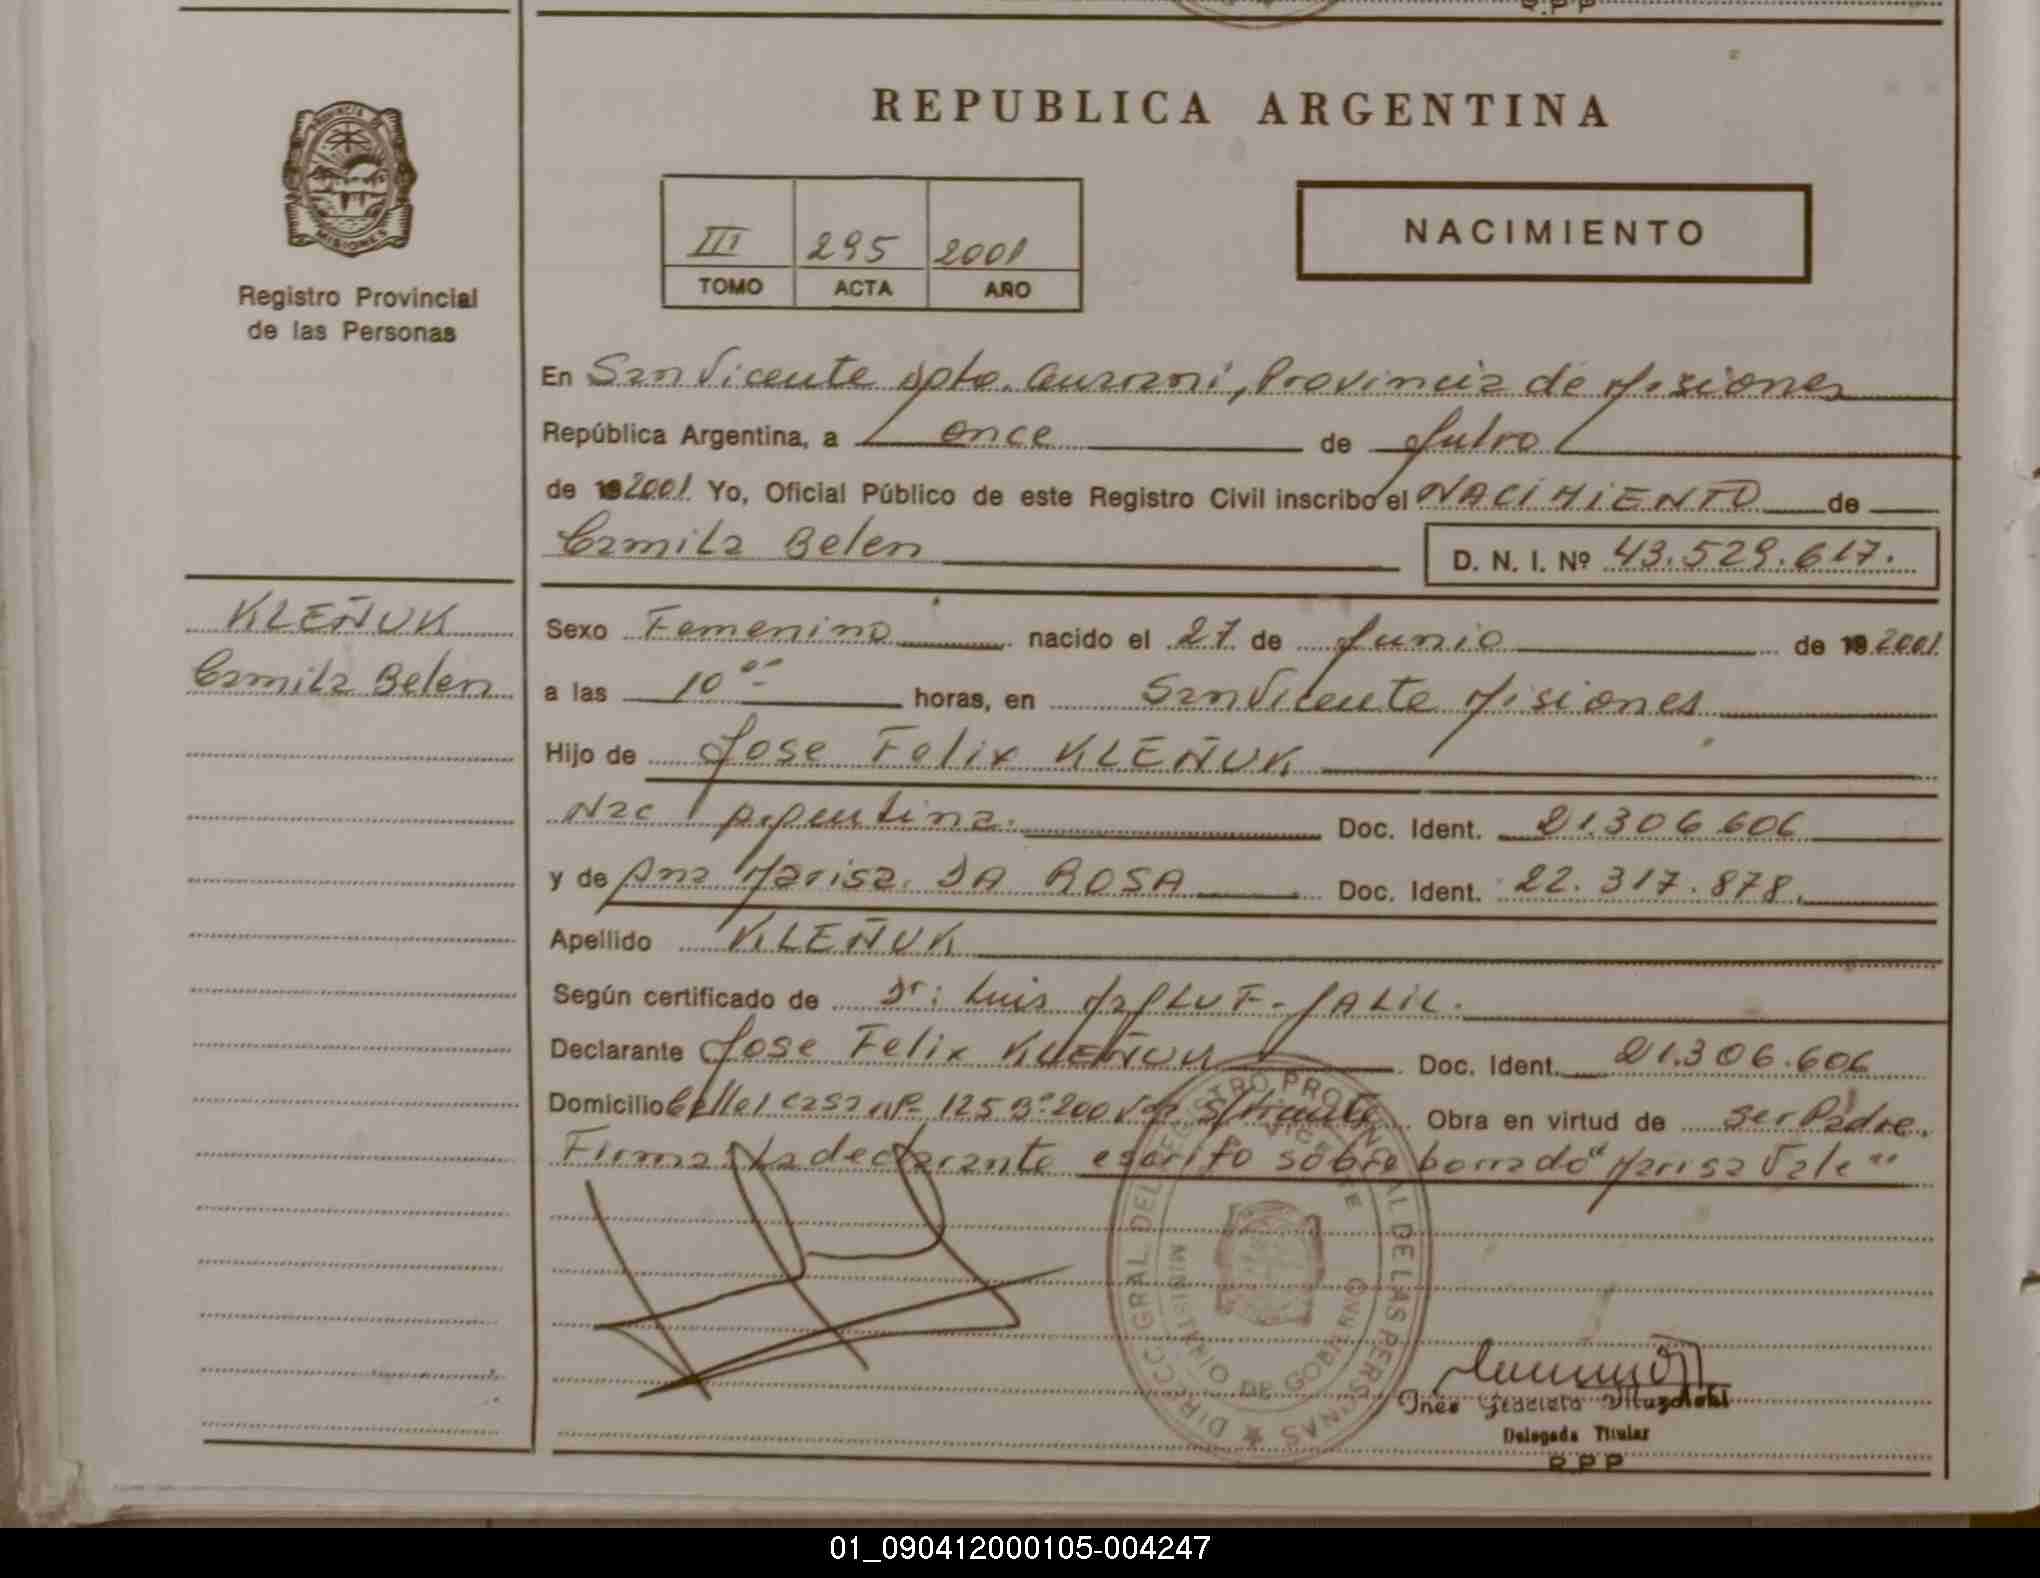 R.P.P
REPUBLICA ARGENTINA
PROVINCIA DE
MISIONES
Registro Provincial
de las Personas
III 295 2001
TOMO ACTA AÑO
NACIMIENTO
En San Vicente Dpto. Guarani, Provincia de Misiones
República Argentina, a once de Julio
de 192001. Yo, Oficial Público de este Registro Civil inscribo el NACIMIENTO de
Camila Belen D. N. I. Nº 43.529.617.
KLEÑUK
Camila Belen
Sexo Femenino nacido el 27 de Junio de 192001.
a las 10 00 horas, en San Vicente Misiones
Hijo de Jose Felix KLEÑUK
Nac Argentina. Doc. Ident. 21.306.606
y de Ana Marisa DA ROSA Doc. Ident. 22.317.878.
Apellido KLEÑUK
Según certificado de Dr: Luis JALIL.
Declarante Jose Felix KLEÑUK Doc. Ident. 21.306.606
Domicilio Calle 1 casa nº 125 Bº 200 S/Vicente Obra en virtud de ser Padre.
Firma declarante escrito sobre borrado "Marisa Vale"
DIRECC. GRAL DEL REGISTRO PROVINCIAL DE LAS PERSONAS
MINISTERIO DE GOBIERNO
VICENTE
Inés Graciela
Delegada Titular
R.P.P
01_090412000105-004247